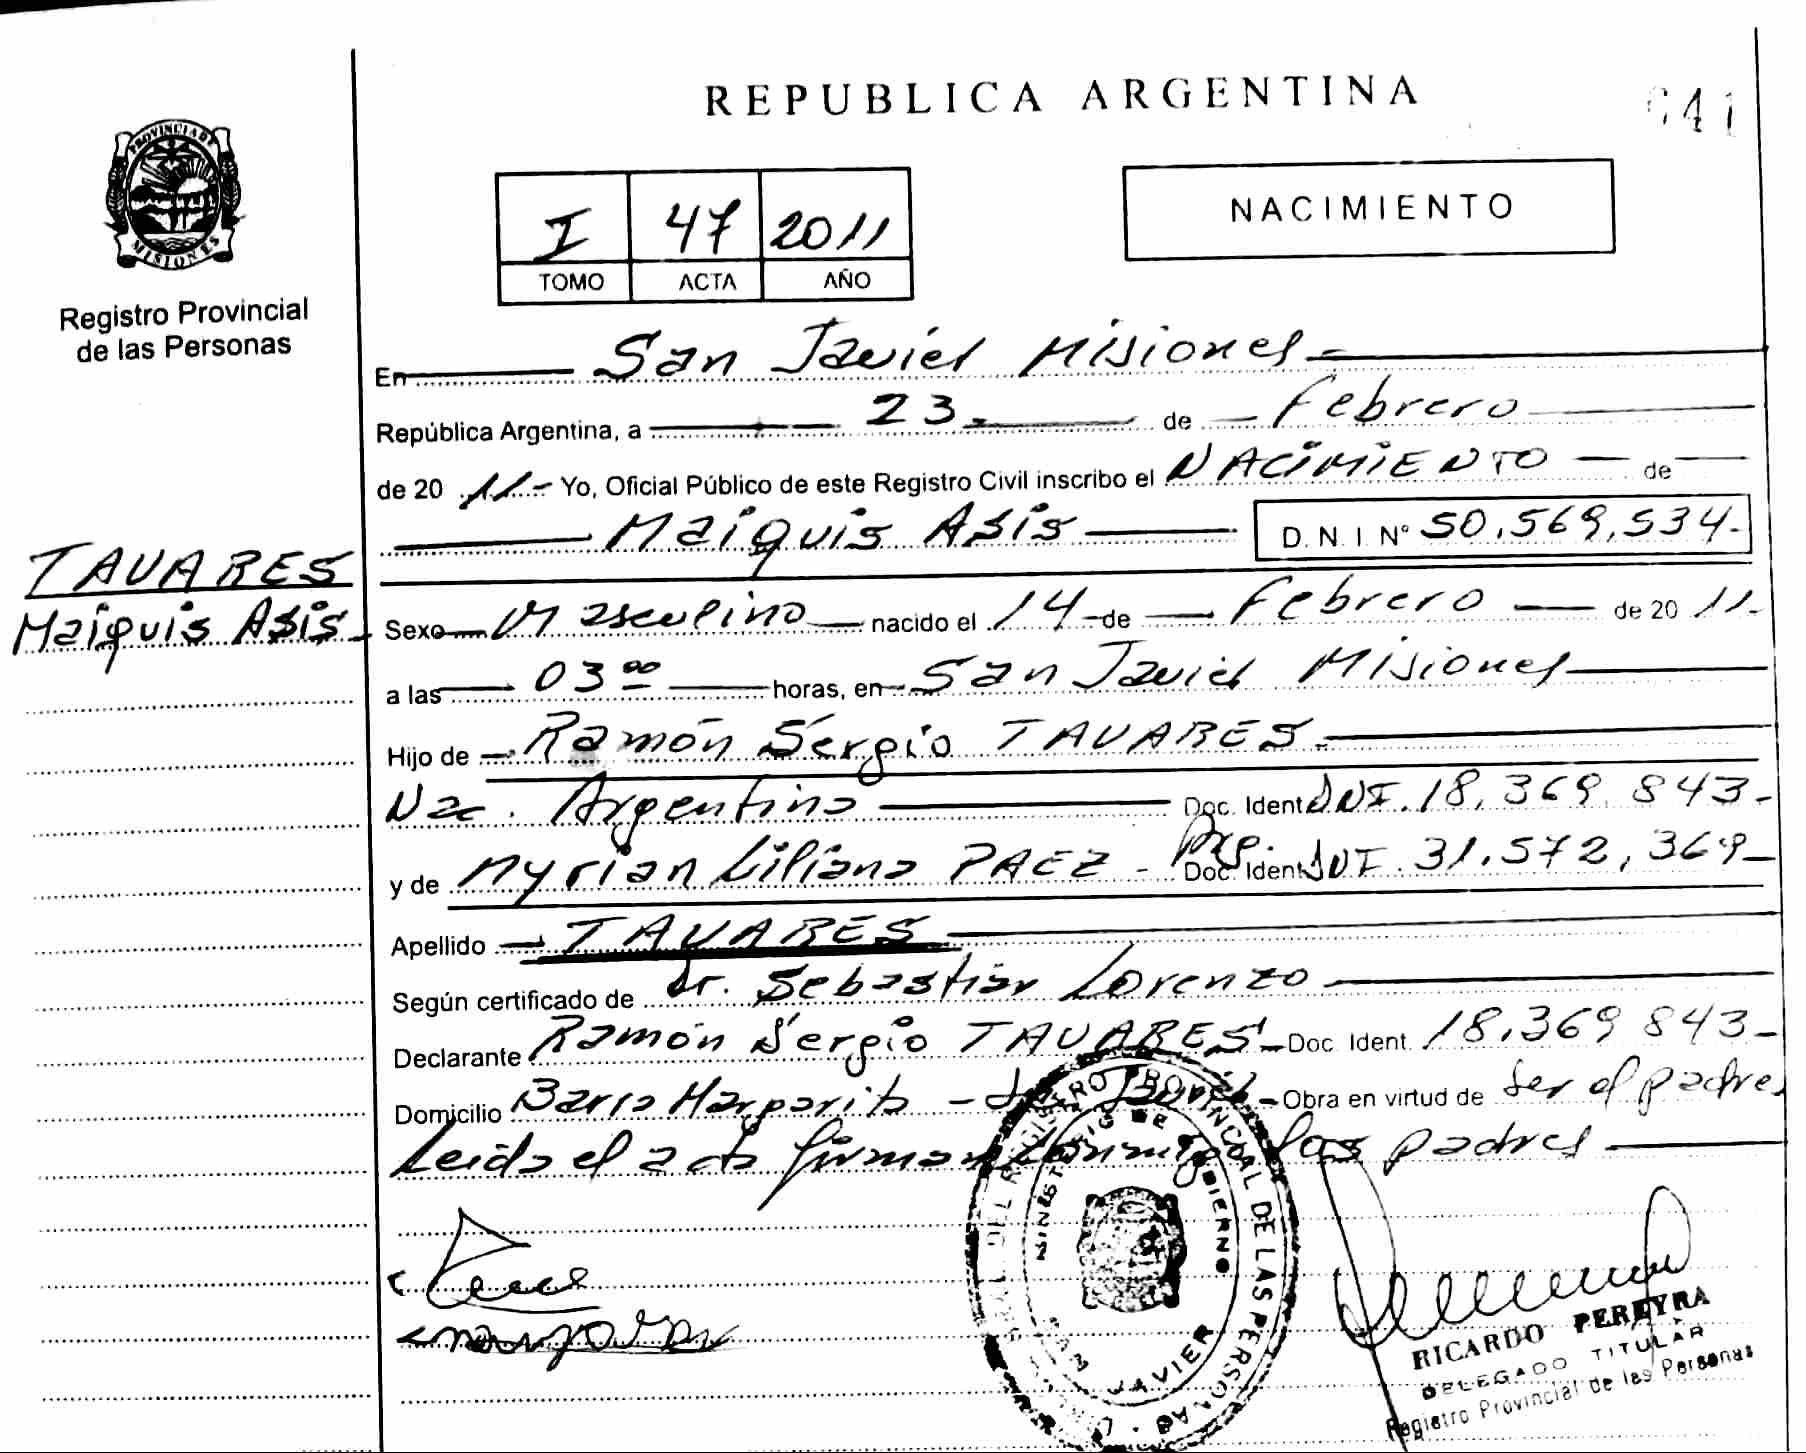 REPUBLICA ARGENTINA
41
PROVINCIA DE
MISIONES
Registro Provincial
de las Personas
I 47 2011
TOMO ACTA AÑO
NACIMIENTO
En San Javier Misiones -
República Argentina, a 23 de Febrero
de 20 11- Yo, Oficial Público de este Registro Civil inscribo el NACIMIENTO de
Maiquis Asis D. N. I. N° 50.569.534-
TAVARES
Maiquis Asis-
Sexo Masculino nacido el 14 de Febrero de 20 11-
a las 03 00 horas, en San Javier Misiones
Hijo de Ramón Sergio TAVARES -
Nac. Argentina Doc. Ident. DNI. 18.369.843-
y de Myrian Liliana PAEZ - Arg. Doc. Ident. DNI. 31.572.369-
Apellido TAVARES
Según certificado de Dr. Sebastián Lorenzo
Declarante Ramón Sergio TAVARES - Doc. Ident. 18.369.843-
Domicilio Barrio Margarita - San Javier - Obra en virtud de ser el padre
Leida el acta firman conmigo los padres
REGISTRO PROVINCIAL DE LAS PERSONAS
MINISTERIO DE GOBIERNO
SAN JAVIER
RICARDO PEREYRA
DELEGADO TITULAR
Registro Provincial de las Personas